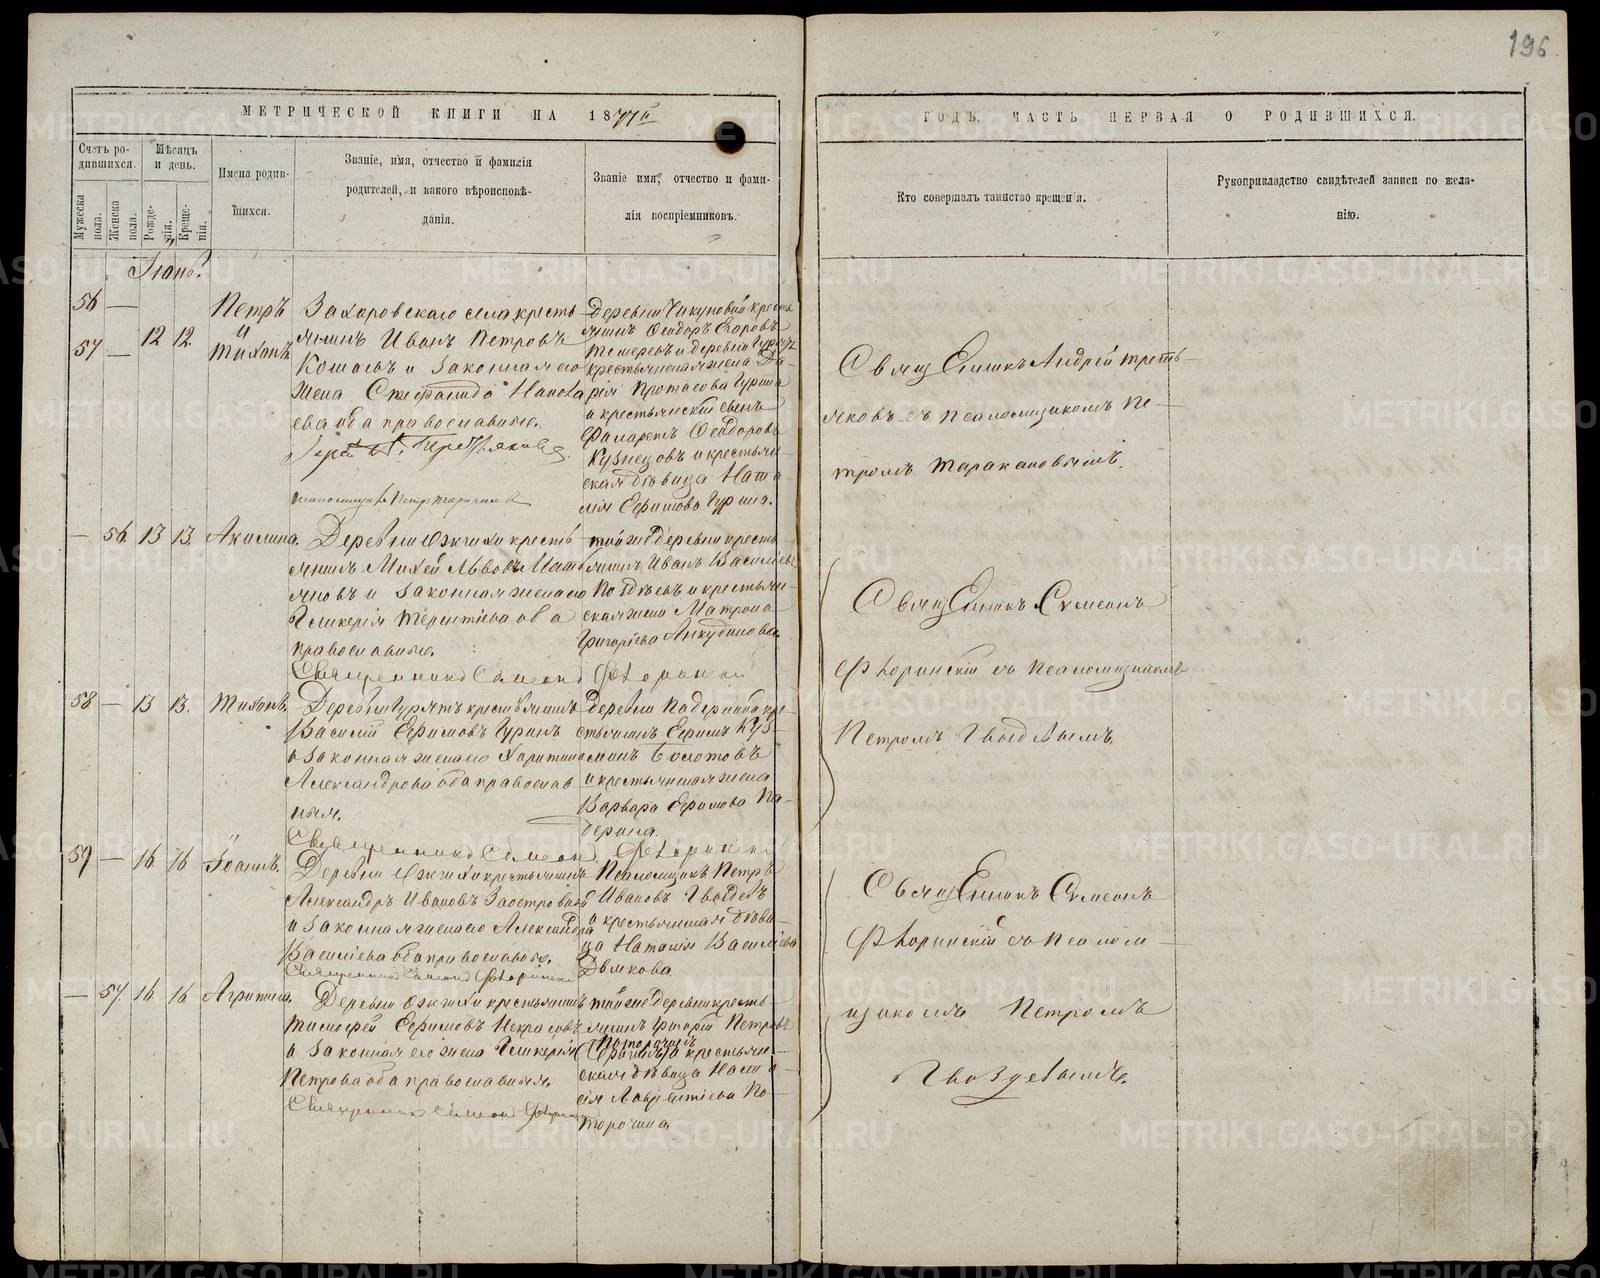 196
МЕТРИЧЕСКОЙ КНИГИ НА 1871й
ГОДЪ, ЧАСТЬ ПЕРВАЯ О РОДИВШИХСЯ.
Счетъ родившихся.
Мужеска пола.
Женска пола.
Мѣсяцъ и день.
Рожденія.
Крещенія.
Имена родившихся.
Званіе, имя, отчество и фамилія
родителей, и какого вѣроисповѣ-
данія.
Званіе имя, отчество и фами-
лія воспріемниковъ.
Кто совершалъ таинство крещенія.
Рукоприкладство свидѣтелей записи по жела-
нію.
56 —
57 —
12 12.
Петръ
и
Тихонъ
Захаровскаго села кресть-
янинъ Иванъ Петровъ
и законная его
жена
ева оба православные.
деревни Чикуновой кресть-
янинъ Ѳеодоръ Егоровъ
и деревни
крестьянская жена Да-
рія Протасова Гурина
и крестьянскій сынъ
Филаретъ Ѳеодоровъ
Кузнецовъ и крестьян-
ская дѣвица Ната-
лія Ефимова Гурина.
Священникъ Андрей Треть-
яковъ съ псаломщикомъ Пе-
тромъ Таракановымъ.
— 56 13 13. Акилина.
Деревни Ожгихи кресть-
янинъ Михей Львовъ
и законная жена его
Гликерія Терентіева оба
православные.
Священникъ Симеонъ Флоринскій
той же деревни кресть-
янинъ Иванъ Василіевъ
Поздѣевъ и крестьян-
ская жена Матрона
Григоріева Анкудинова.
Священникъ Симеонъ
Флоринскій съ псаломщикомъ
Петромъ Гвоздевымъ.
58 — 13 13. Тихонъ.
крестьянинъ
Василій Ефимовъ Гуринъ
и законная жена его Харитина
Александрова оба православ-
ные.
Священникъ Симеонъ Флоринскій
деревни Падериной кре-
стьянинъ Ефимъ Куз-
минъ Болотовъ
и крестьянская жена
Варвара Ефимова Па-
дерина.
59 — 16 16 Іоаннъ.
Деревни Ожгихи крестьянинъ
Александръ Ивановъ
и законная жена его Александра
Василіева оба православные.
Священникъ Симеонъ Флоринскій
Псаломщикъ Петръ
Ивановъ Гвоздевъ
и крестьянская дѣви-
ца Наталія Василіева
Дьякова.
Священникъ Симеонъ
Флоринскій съ псалом-
щикомъ Петромъ
Гвоздевымъ.
— 57. 16. 16 Агрипина.
Деревни Ожгихи крестьянинъ
Тимоѳей Ефимовъ Некрасовъ
и законная его жена Гликерія
Петрова оба православные.
Священникъ Симеонъ Флоринскій
той же деревни кресть-
янинъ Григорій Петровъ
Поторочинъ
и крестьян-
ская дѣвица
Лаврентіева По-
торочина.
METRIKI.GASO-URAL.RU